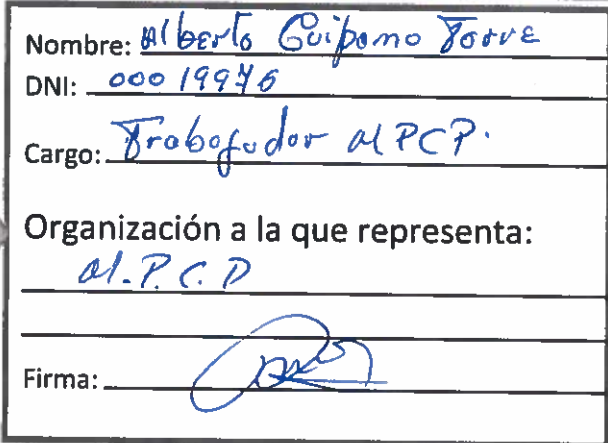 Nombre: Alberto Guipano Torre
DNI: 00019976
Cargo: Trabafador MPCP.
Organización a la que representa:
M.P.C.P
Firma: